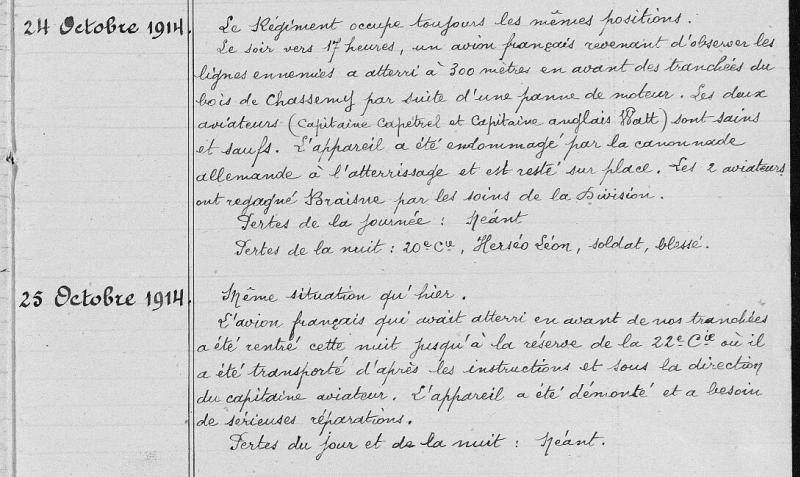 24 Octobre 1914. Le Régiment occupe toujours les mêmes positions.
Le soir vers 17 heures, un avion français revenant d'observer les
lignes ennemies a atterri à 300 mètres en avant des tranchées du
bois de Chassemy par suite d'une panne de moteur. Les deux
aviateurs (Capitaine Capetrel et Capitaine anglais Watt) sont sains
et saufs. L'appareil a été endommagé par la canonnade
allemande à l'atterrissage et est resté sur place. Les 2 aviateurs
ont regagné Braisne par les soins de la Division.
Pertes de la journée : Néant
Pertes de la nuit : 20e Cie, Herséo Léon, soldat, blessé.
25 Octobre 1914. Même situation qu'hier.
L'avion français qui avait atterri en avant de nos tranchées
a été rentré cette nuit jusqu'à la réserve de la 22e Cie où il
a été transporté d'après les instructions et sous la direction
du capitaine aviateur. L'appareil a été démonté et a besoin
de sérieuses réparations.
Pertes du jour et de la nuit : Néant.